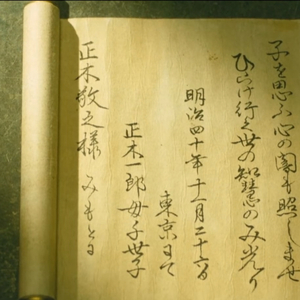 子を思ふ心の闇も照しませ
ひらけ行く世の智慧のみ光り
明治四十年十一月二十六日
東京にて
正木一郎 母子世子
正木敬之様 みもとに